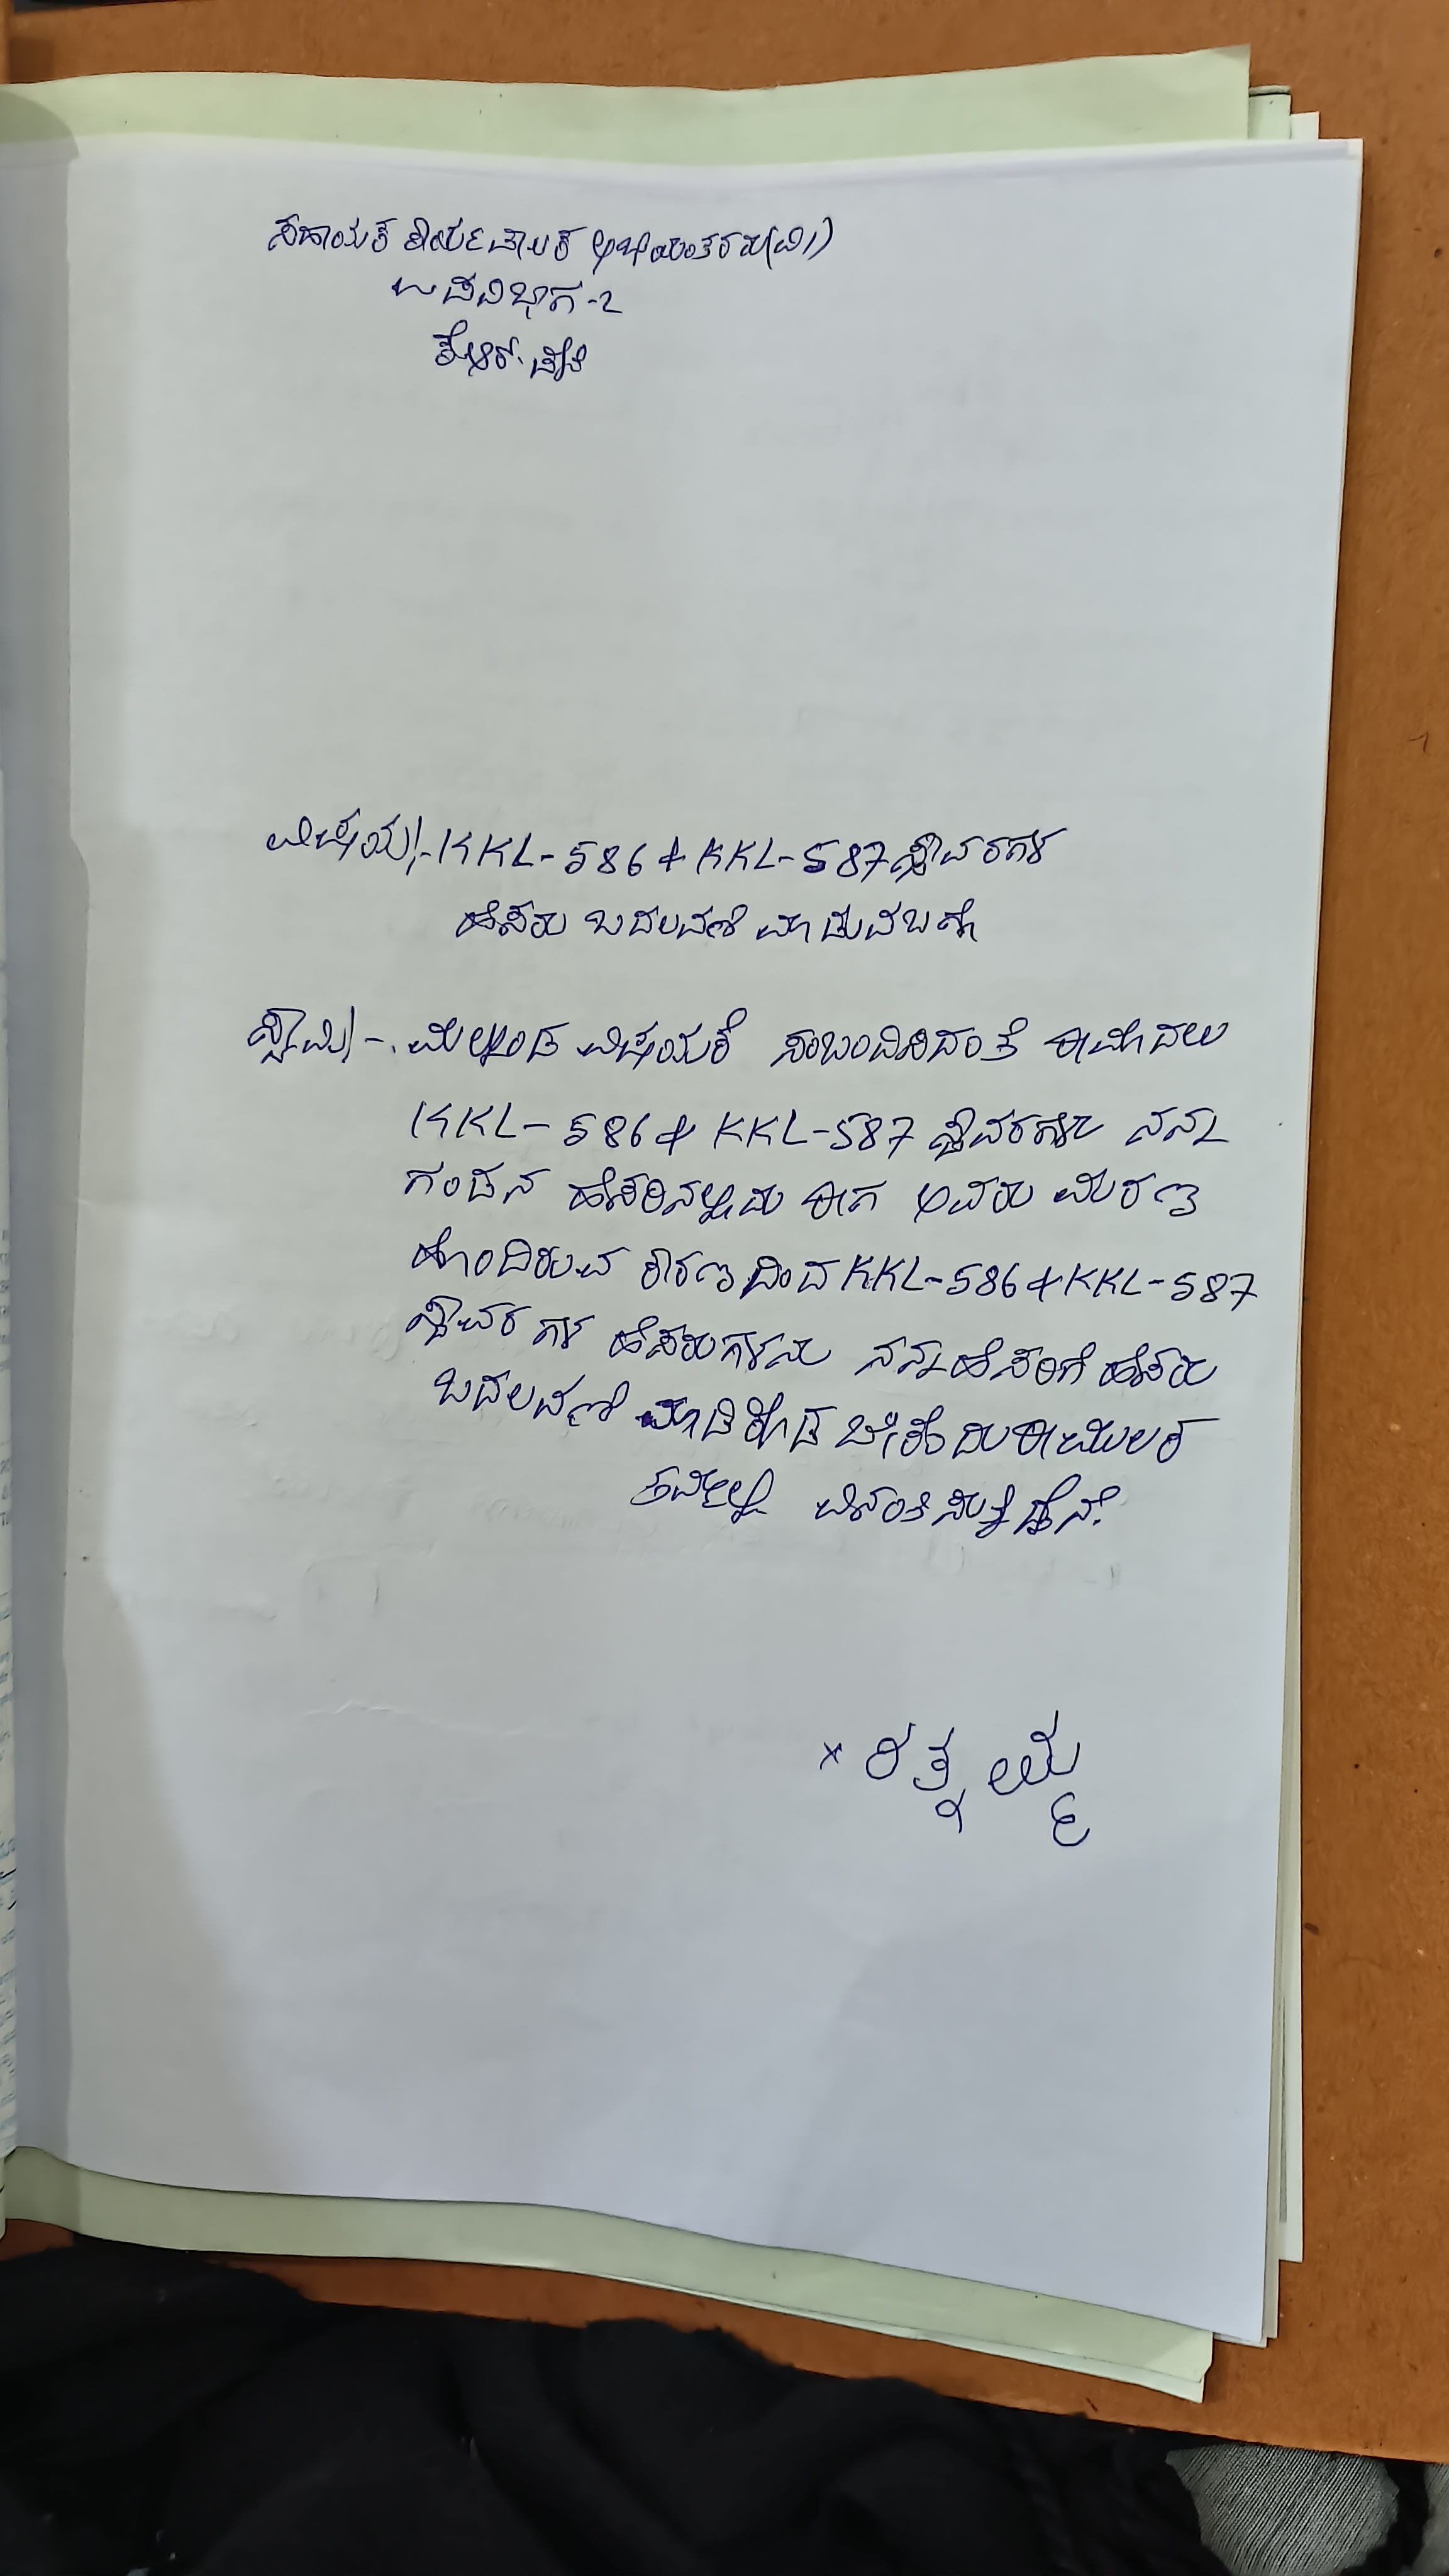 ಸಹಾಯಕ ಕಾರ್ಯಪಾಲಕ ಅಭಿಯಂತರರು(ವಿ)
ಉಪವಿಭಾಗ-2
ಕೆ.ಆರ್.ಪೇಟೆ
ವಿಷಯ:-KKL-586 & KKL-587 ಸ್ಥಾವರಗಳ
ಹೆಸರು ಬದಲವಣೆ ಮಾಡುವ ಬಗ್ಗೆ
ಸ್ವಾಮಿ:- ಮೇಲ್ಕಂಡ ವಿಷಯಕೆ ಸಂಬಂದಿಸಿದಂತೆ ಈ ಮೊದಲು
KKL-586 & KKL-587 ಸ್ಥಾವರಗಳು ನನ್ನ
ಗಂಡನ ಹೆಸರಿನಲ್ಲಿದ್ದು ಈಗ ಅವರು ಮರಣ
ಹೊಂದಿರುವ ಕಾರಣದಿಂದ KKL-586 & KKL-587
ಸ್ಥಾವರ ಗಳ ಹೆಸರುಗಳನು ನನ್ನ ಹೆಸರಿಗೆ ಹೆಸರು
ಬದಲವಣೆ ಮಾಡಿಕೊಡ ಬೇಕೆಂದು ಈ ಮೂಲಕ
ತಮ್ಮಲ್ಲಿ ವಿನಂತಿಸುತ್ತಿದ್ದೇನೆ.
× ರತ್ನಮ್ಮ